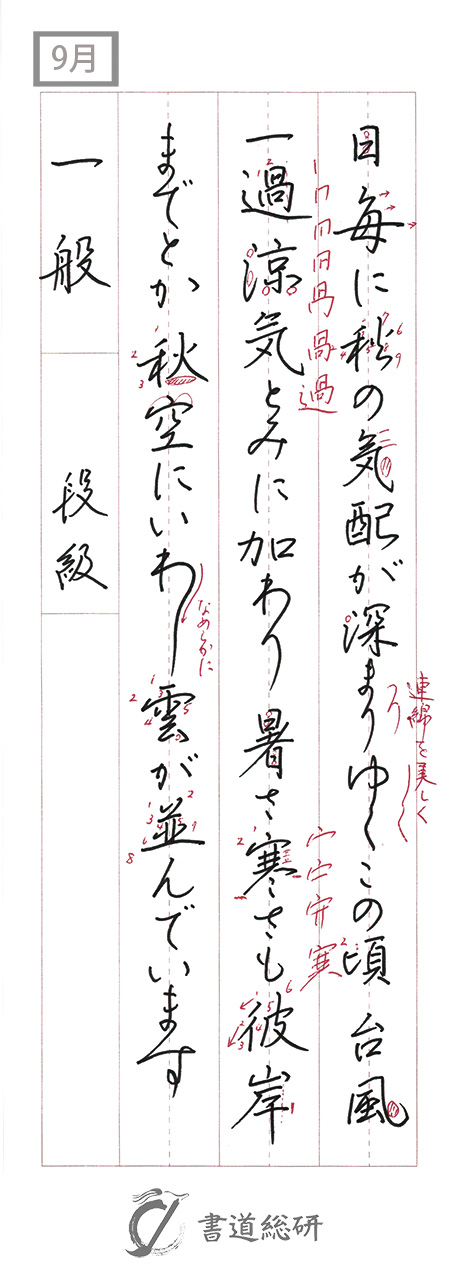 9月
日毎に秋の気配が深まりゆくこの頃 台風
一過涼気とみに加わり 暑さ寒さも彼岸
までとか 秋空にいわし雲が並んでいます
一般
段級
連綿を美しく
なめらかに
書道総研